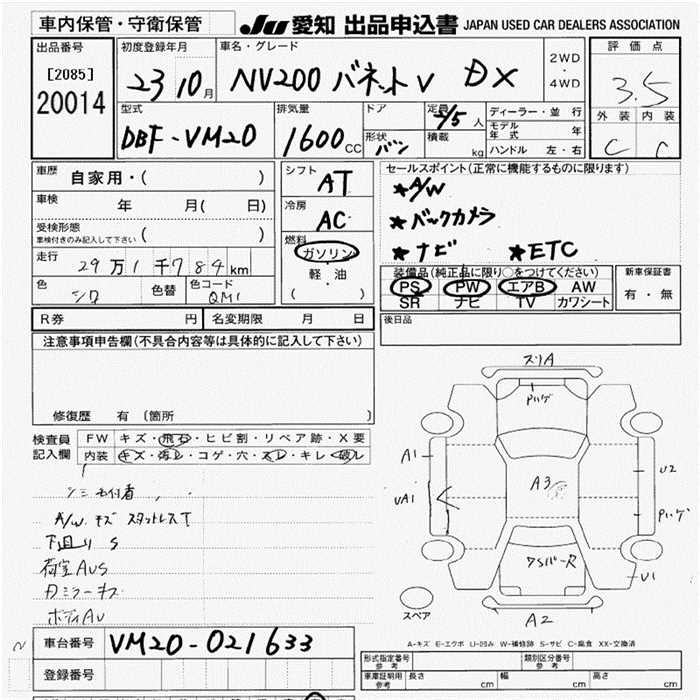 車内保管・守衛保管
JU 愛知 出品申込書 JAPAN USED CAR DEALERS ASSOCIATION
出品番号
[2085]
20014
初度登録年月
23 10月
車名・グレード
NV200 バネットV DX
2WD
・
4WD
評価点
3.5
外装 内装
C C
型式
DBF-VM20
排気量
1600cc
ドア
形状
バン
定員
2/5人
積載
kg
ディーラー・並行
モデル年式 年
ハンドル 左・右
車歴
自家用・( )
車検
年 月( 日)
受検形態
車検付きのみ記入して下さい ( )
走行
29万1千784km
色
シロ
色替
色コード
QM1
シフト
AT
冷房
AC
燃料
ガソリン
軽・油
( )
セールスポイント(正常に機能するものに限ります)
★A/W
★バックカメラ
★ナビ ★ETC
装備品(純正品に限り○をつけてください)
PS PW エアB AW
SR ナビ TV カワシート
新車保証書
有・無
R券 円 名変期限 月 日
後日品
注意事項申告欄(不具合内容等は具体的に記入して下さい)
修復歴 有 (箇所 )
検査員
記入欄
FW キズ・飛石・ヒビ割・リペア跡・X要
内装 キズ・汚レ・コゲ・穴・スレ・キレ・破レ
A/W キズ スタットレスT
下廻り S
荷室AUS
ボディAU
スリA
A1
UA1
A3
U2
U1
A2
スペア
A-キズ E-エクボ U-凹み W-補修跡 S-サビ C-腐食 XX-交換済
車台番号 VM20-021633
登録番号
形式指定番号
参考
類別区分番号
参考
車庫証明用
参考
長さ cm 幅 cm 高さ cm